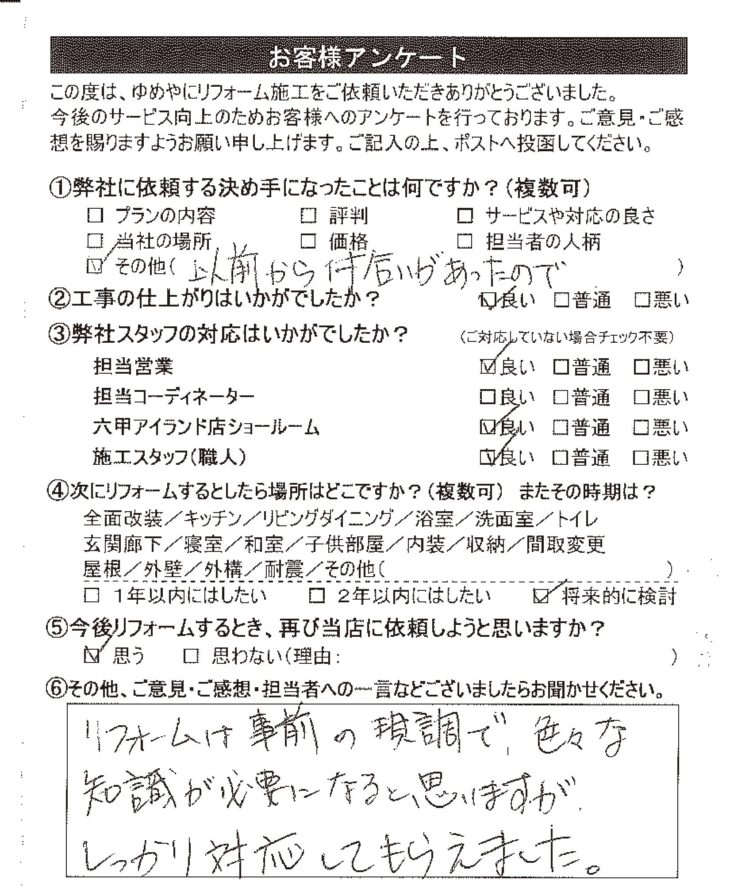 お客様アンケート
この度は、ゆめやにリフォーム施工をご依頼いただきありがとうございました。
今後のサービス向上のためお客様へのアンケートを行っております。ご意見・ご感
想を賜りますようお願い申し上げます。ご記入の上、ポストへ投函してください。
①弊社に依頼する決め手になったことは何ですか？(複数可)
□ プランの内容 □ 評判 □ サービスや対応の良さ
□ 当社の場所 □ 価格 □ 担当者の人柄
☑ その他( 以前から付合いがあったので )
②工事の仕上がりはいかがでしたか？ ☑良い □普通 □悪い
③弊社スタッフの対応はいかがでしたか？ (ご対応していない場合チェック不要)
担当営業 ☑良い □普通 □悪い
担当コーディネーター □良い □普通 □悪い
六甲アイランド店ショールーム ☑良い □普通 □悪い
施工スタッフ(職人) ☑良い □普通 □悪い
④次にリフォームするとしたら場所はどこですか？(複数可) またその時期は？
全面改装／キッチン／リビングダイニング／浴室／洗面室／トイレ
玄関廊下／寝室／和室／子供部屋／内装／収納／間取変更
屋根／外壁／外構／耐震／その他( )
□ 1年以内にはしたい □ 2年以内にはしたい ☑ 将来的に検討
⑤今後リフォームするとき、再び当店に依頼しようと思いますか？
☑ 思う □ 思わない(理由: )
⑥その他、ご意見・ご感想・担当者への一言などございましたらお聞かせください。
リフォームは事前の現調で、色々な
知識が必要になると思いますが、
しっかり対応してもらえました。